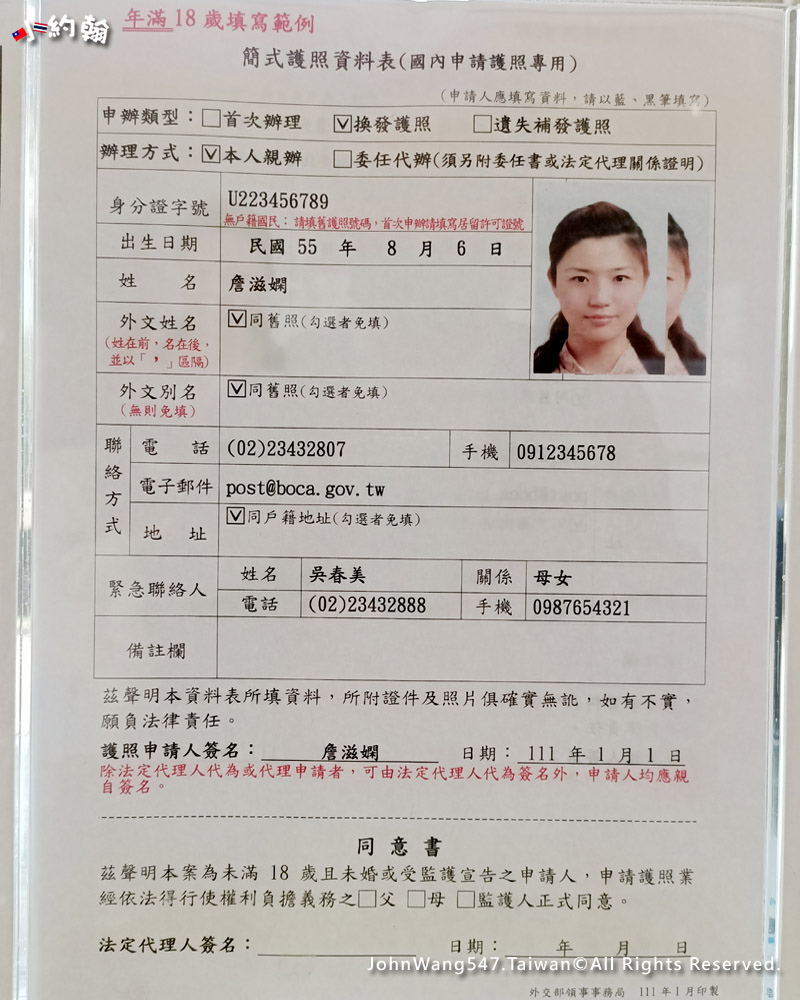 小約翰
年滿 18 歲填寫範例
簡式護照資料表(國內申請護照專用)
(申請人應填寫資料，請以藍、黑筆填寫)
申辦類型：□首次辦理 ☑換發護照 □遺失補發護照
辦理方式：☑本人親辦 □委任代辦(須另附委任書或法定代理關係證明)
身分證字號 U223456789
無戶籍國民：請填舊護照號碼，首次申辦請填寫居留許可證號
出生日期 民國 55 年 8 月 6 日
姓 名 詹滋嫻
外文姓名 ☑同舊照(勾選者免填)
(姓在前，名在後，
並以「，」區隔)
外文別名 ☑同舊照(勾選者免填)
(無則免填)
聯絡方式
電 話 (02)23432807 手機 0912345678
電子郵件 post@boca.gov.tw
地 址 ☑同戶籍地址(勾選者免填)
緊急聯絡人
姓名 吳春美 關係 母女
電話 (02)23432888 手機 0987654321
備註欄
茲聲明本資料表所填資料，所附證件及照片俱確實無訛，如有不實，
願負法律責任。
護照申請人簽名： 詹滋嫻 日期： 111 年 1 月 1 日
除法定代理人代為或代理申請者，可由法定代理人代為簽名外，申請人均應親
自簽名。
同 意 書
茲聲明本案為未滿 18 歲且未婚或受監護宣告之申請人，申請護照業
經依法得行使權利負擔義務之□父 □母 □監護人正式同意。
法定代理人簽名： 日期： 年 月 日
JohnWang547.Taiwan©All Rights Reserved.
外交部領事事務局 111 年 1 月印製